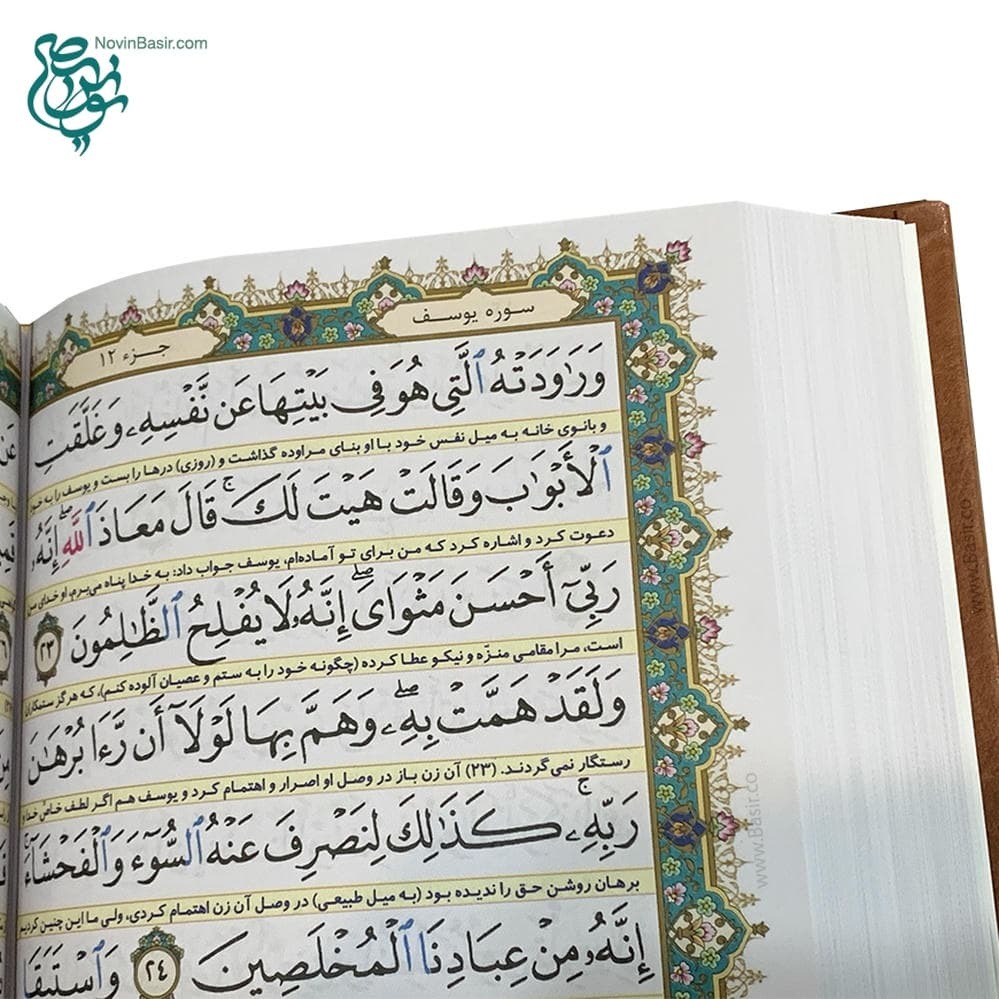 NovinBasir.com
سوره یوسف
جزء ١٢
وَرَٰوَدَتْهُ ٱلَّتِى هُوَ فِى بَيْتِهَا عَن نَّفْسِهِۦ وَغَلَّقَتِ
و بانوی خانه به میل نفس خود با او بنای مراوده گذاشت و (روزی) درها را بست و یوسف را به خود
ٱلْأَبْوَٰبَ وَقَالَتْ هَيْتَ لَكَ ۚ قَالَ مَعَاذَ ٱللَّهِ ۖ إِنَّهُۥ
دعوت کرد و اشاره کرد که من برای تو آماده‌ام، یوسف جواب داد: به خدا پناه می‌برم، او خدای من
رَبِّىٓ أَحْسَنَ مَثْوَاىَ ۖ إِنَّهُۥ لَا يُفْلِحُ ٱلظَّٰلِمُونَ ٢٣
است، مرا مقامی منزّه و نیکو عطا کرده (چگونه خود را به ستم و عصیان آلوده کنم)، که هرگز ستمکاران
وَلَقَدْ هَمَّتْ بِهِۦ ۖ وَهَمَّ بِهَا لَوْلَآ أَن رَّءَا بُرْهَٰنَ
رستگار نمی‌گردند. (۲۳) آن زن باز در وصل او اصرار و اهتمام کرد و یوسف هم اگر لطف خاص خدا و
رَبِّهِۦ ۚ كَذَٰلِكَ لِنَصْرِفَ عَنْهُ ٱلسُّوٓءَ وَٱلْفَحْشَآءَ ۚ
برهان روشن حق را ندیده بود (به میل طبیعی) در وصل آن زن اهتمام کردی، ولی ما این چنین کردیم
إِنَّهُۥ مِنْ عِبَادِنَا ٱلْمُخْلَصِينَ ٢٤ وَٱسْتَبَقَا
www.Basir.co
www.Basir.co